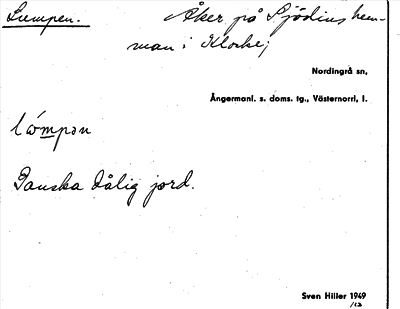 Lumpen.
Åker på Sjödins hem-
man i Klocke;
Nordingrå sn,
Ångermanl. s. doms. tg., Västernorrl. l.
Ganska dålig jord.
Sven Hiller 1949
/12